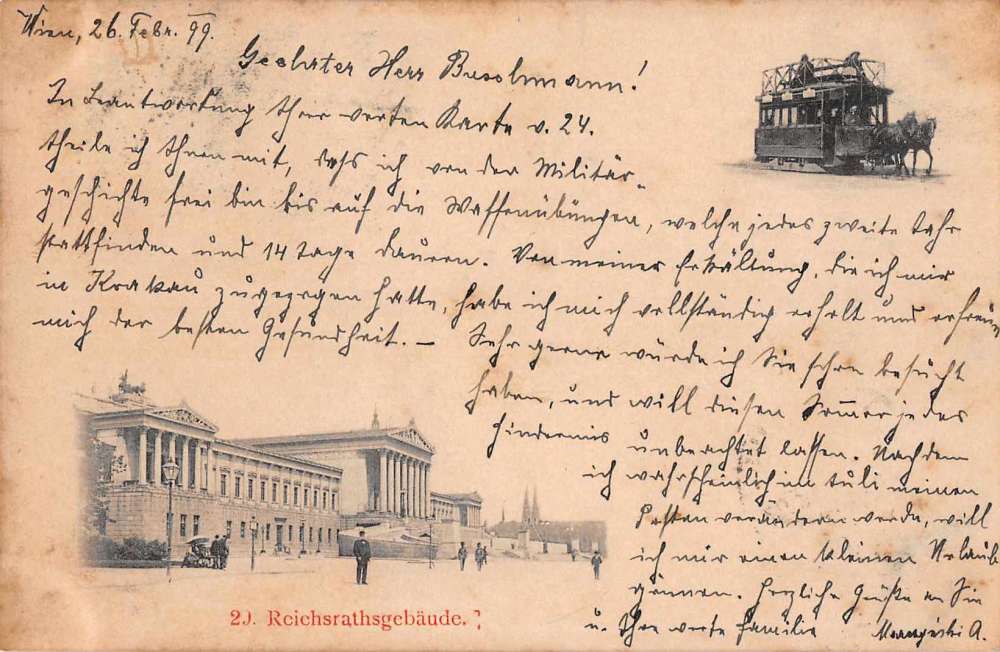 Wien, 26. Febr. 99.
Geehrter Herr Buschmann!
In Beantwortung Ihrer werten Karte v. 24.
theile ich Ihnen mit, daß ich von der Militär-
geschichte frei bin bis auf die Waffenübungen, welche jedes zweite Jahr
stattfinden und 14 Tage dauern. Von meiner Erkältung, die ich mir
in Krakau zugezogen hatte, habe ich mich vollständig erholt und erfreue
mich der besten Gesundheit. – Sehr gerne würde ich Sie schon besucht
haben, und will diesen Sommer jedes
Hindernis unbeachtet lassen. Nachdem
ich wahrscheinlich im Juli meinen
Posten verändern werde, will
ich mir einen kleinen Urlaub
gönnen. Herzliche Grüße an Sie
u. Ihre werte Familie A.
20. Reichsrathsgebäude.